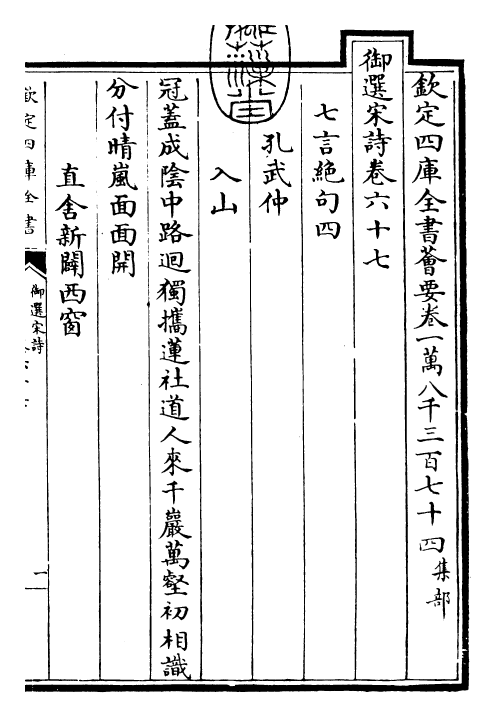 欽定四庫全書薈要卷一萬八千三百七十四集部
御選宋詩卷六十七
七言絶句四
孔武仲
入山
冠蓋成陰中路迴獨攜蓮社道人來千巖萬壑初相識
分付晴嵐面面開
直舍新闢西窗
欽定四庫全書
御選宋詩
一